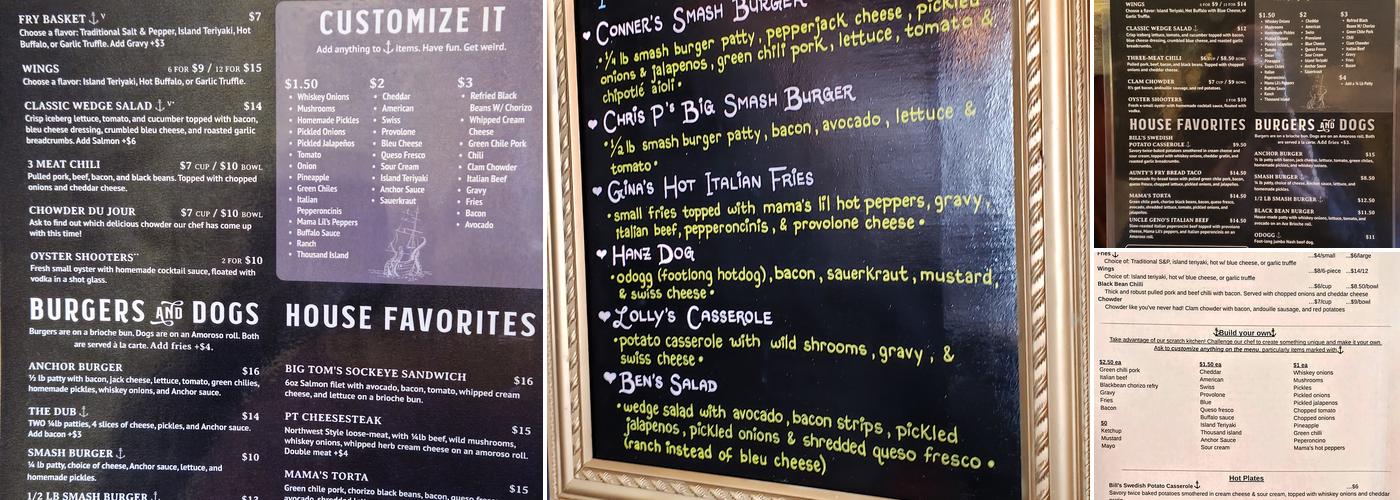 FRY BASKET ⚓ V $7
Choose a flavor: Traditional Salt & Pepper, Island Teriyaki, Hot
Buffalo, or Garlic Truffle. Add Gravy +$3
WINGS 6 FOR $9 / 12 FOR $15
Choose a flavor: Island Teriyaki, Hot Buffalo, or Garlic Truffle.
CLASSIC WEDGE SALAD ⚓ V* $14
Crisp iceberg lettuce, tomato, and cucumber topped with bacon,
bleu cheese dressing, crumbled bleu cheese, and roasted garlic
breadcrumbs. Add Salmon +$6
3 MEAT CHILI $7 CUP / $10 BOWL
Pulled pork, beef, bacon, and black beans. Topped with chopped
onions and cheddar cheese.
CHOWDER DU JOUR $7 CUP / $10 BOWL
Ask to find out which delicious chowder our chef has come up
with this time!
OYSTER SHOOTERS** 2 FOR $10
Fresh small oyster with homemade cocktail sauce, floated with
vodka in a shot glass.
BURGERS AND DOGS
Burgers are on a brioche bun. Dogs are on an Amoroso roll. Both
are served à la carte. Add fries +$4.
ANCHOR BURGER $16
½ lb patty with bacon, jack cheese, lettuce, tomato, green chilies,
homemade pickles, whiskey onions, and Anchor sauce.
THE DUB ⚓ $14
TWO ¼lb patties, 4 slices of cheese, pickles, and Anchor sauce.
Add bacon +$3
SMASH BURGER ⚓ $10
¼ lb patty, choice of cheese, Anchor sauce, lettuce, and
homemade pickles.
1/2 LB SMASH BURGER ⚓
CUSTOMIZE IT
Add anything to ⚓ items. Have fun. Get weird.
$1.50
• Whiskey Onions
• Mushrooms
• Homemade Pickles
• Pickled Onions
• Pickled Jalapeños
• Tomato
• Onion
• Pineapple
• Green Chiles
• Italian
Pepperoncinis
• Mama Lil's Peppers
• Buffalo Sauce
• Ranch
• Thousand Island
$2
• Cheddar
• American
• Swiss
• Provolone
• Bleu Cheese
• Queso Fresco
• Sour Cream
• Island Teriyaki
• Anchor Sauce
• Sauerkraut
$3
• Refried Black
Beans W/ Chorizo
• Whipped Cream
Cheese
• Green Chile Pork
• Chili
• Clam Chowder
• Italian Beef
• Gravy
• Fries
• Bacon
• Avocado
HOUSE FAVORITES
BIG TOM'S SOCKEYE SANDWICH $16
6oz Salmon filet with avocado, bacon, tomato, whipped cream
cheese, and lettuce on a brioche bun.
PT CHEESESTEAK $15
Northwest Style loose-meat, with ¼lb beef, wild mushrooms,
whiskey onions, whipped herb cream cheese on an amoroso roll.
Double meat +$4
MAMA'S TORTA $15
Green chile pork, chorizo black beans, bacon, queso fresco,
♥ CONNER'S SMASH BURGER
• ¼ lb smash burger patty, pepperjack cheese, pickled
onions & jalapenos, green chili pork, lettuce, tomato &
chipotle aioli •
♥ CHRIS P'S BIG SMASH BURGER
• ½ lb smash burger patty, bacon, avocado, lettuce &
tomato •
♥ GINA'S HOT ITALIAN FRIES
• small fries topped with mama's lil hot peppers, gravy,
italian beef, pepperoncinis, & provolone cheese •
♥ HANZ DOG
• odogg (footlong hotdog), bacon, sauerkraut, mustard,
& swiss cheese •
♥ LOLLY'S CASSEROLE
• potato casserole with wild shrooms, gravy, &
swiss cheese •
♥ BEN'S SALAD
• wedge salad with avocado, bacon strips, pickled
jalapenos, pickled onions & shredded queso fresco •
(ranch instead of bleu cheese)
WINGS
CLASSIC WEDGE SALAD ⚓ $12
THREE-MEAT CHILI
CLAM CHOWDER $7 CUP / $9 BOWL
It's got bacon, andouille sausage, and red potatoes.
OYSTER SHOOTERS 2 FOR $10
HOUSE FAVORITES
BILL'S SWEDISH
POTATO CASSEROLE ⚓ $9.50
AUNTY'S FRY BREAD TACO $14.50
MAMA'S TORTA $14.50
UNCLE GENO'S ITALIAN BEEF $14.50
BURGERS AND DOGS
Burgers are on a brioche bun. Dogs are on an Amoroso roll. Both
are served à la carte. Add fries +$3.
ANCHOR BURGER $15
SMASH BURGER ⚓ $8.50
1/2 LB SMASH BURGER ⚓ $12.50
BLACK BEAN BURGER $11.50
ODOGG ⚓ $11
Foot-long jumbo Nash beef dog.
Fries ⚓ ...$4/small ...$6/large
Choice of: Traditional S&P, island teriyaki, hot w/ blue cheese, or garlic truffle
Wings ...$8/6-piece ...$14/12
Choice of: Island teriyaki, hot w/ blue cheese, or garlic truffle
Black Bean Chilli ...$6/cup ...$8.50/bowl
Thick and robust pulled pork and beef chilli with bacon. Served with chopped onions and cheddar cheese
Chowder ...$7/cup ...$9/bowl
Chowder like you've never had! Clam chowder with bacon, andouille sausage, and red potatoes
⚓Build your own⚓
Take advantage of our scratch kitchen! Challenge our chef to create something unique and make it your own.
Ask to customize anything on the menu, particularly items marked with⚓
$2.50 ea
Green chilli pork
Italian beef
Blackbean chorizo refry
Gravy
Fries
Bacon
$0
Ketchup
Mustard
Mayo
$1.50 ea
Cheddar
American
Swiss
Provolone
Blue
Queso fresco
Buffalo sauce
Island Teriyaki
Thousand island
Anchor Sauce
Sour cream
$1 ea
Whiskey onions
Mushrooms
Pickles
Pickled onions
Pickled jalapenos
Chopped tomato
Chopped onions
Pineapple
Green chilli
Peperoncino
Mama's hot peppers
Hot Plates
Bill's Swedish Potato Casserole⚓ ...$6
Savory twice baked potatoes smothered in cream cheese & sour cream, topped with whiskey onions and cheddar